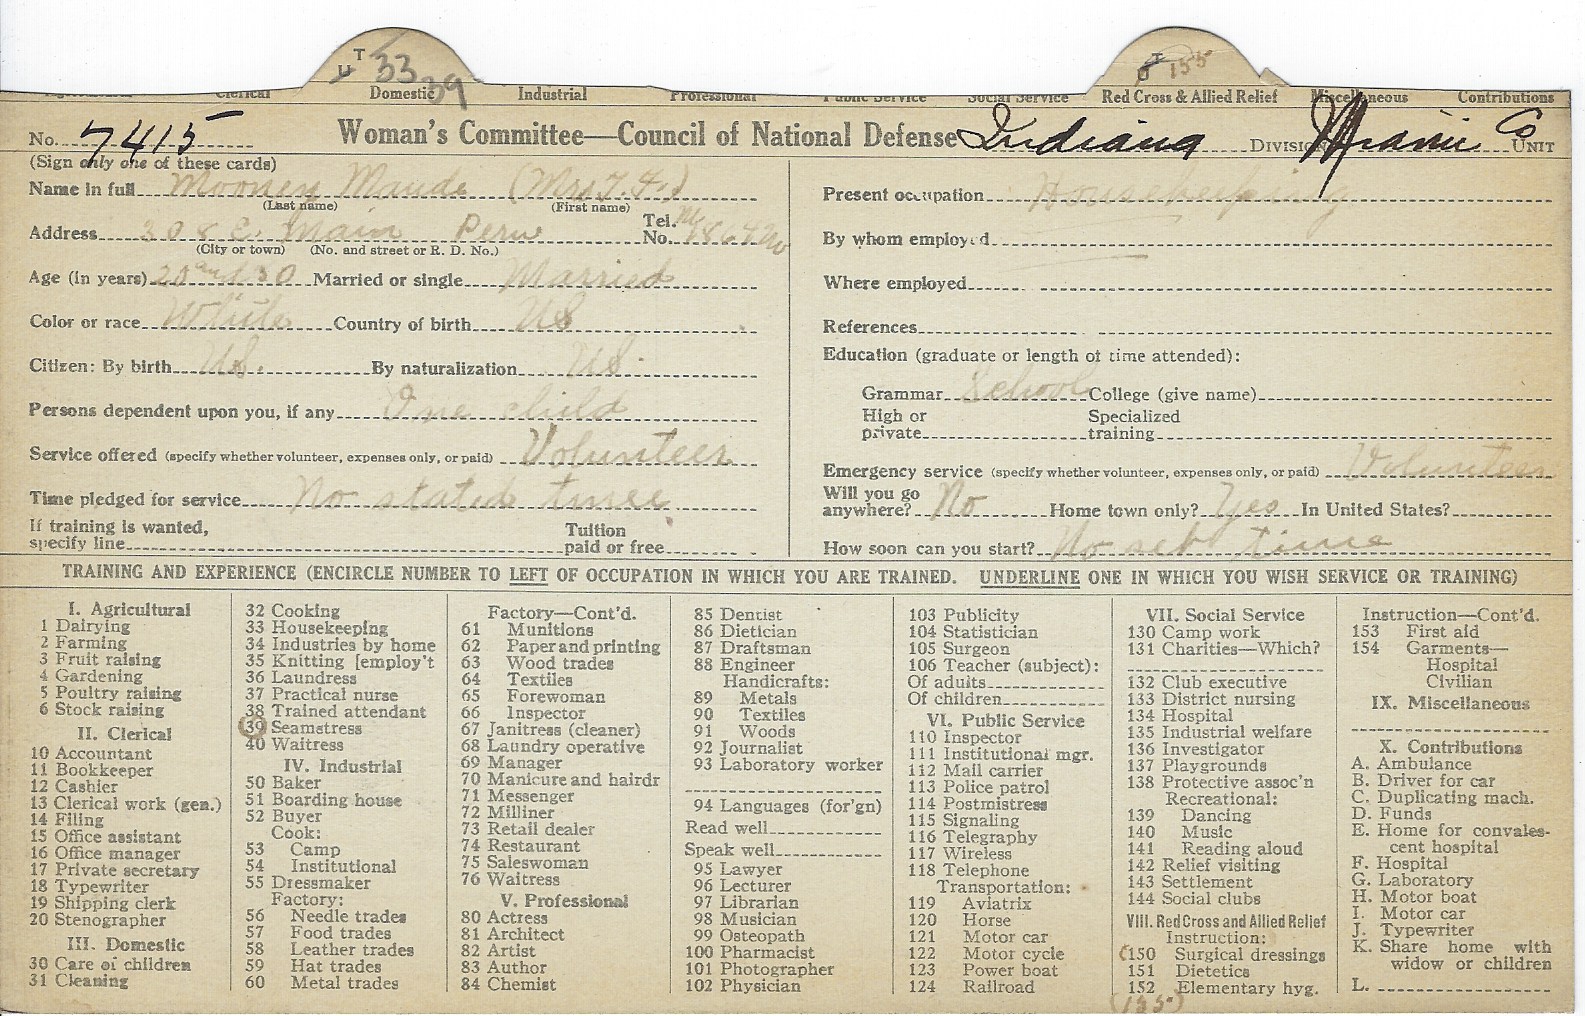 U T 33 39
U T 155
Clerical Domestic Industrial Professional Public Service Social Service Red Cross & Allied Relief Miscellaneous Contributions
No. 7415 Woman's Committee—Council of National Defense Indiana Division Miami Co Unit
(Sign only one of these cards)
Name in full Mooney Maude (Mrs T. F.)
(Last name) (First name)
Address 308 E. Main Peru Tel. No.
(City or town) (No. and street or R. D. No.)
Age (in years) 20 and 30 Married or single Married
Color or race White Country of birth US
Citizen: By birth US. By naturalization US.
Persons dependent upon you, if any One child
Service offered (specify whether volunteer, expenses only, or paid) Volunteer
Time pledged for service No stated time
If training is wanted, specify line
Tuition paid or free
Present occupation Housekeeping
By whom employed
Where employed
References
Education (graduate or length of time attended):
Grammar School College (give name)
High or private Specialized training
Emergency service (specify whether volunteer, expenses only, or paid) Volunteer
Will you go anywhere? No Home town only? Yes In United States?
How soon can you start? No set time
TRAINING AND EXPERIENCE (ENCIRCLE NUMBER TO LEFT OF OCCUPATION IN WHICH YOU ARE TRAINED. UNDERLINE ONE IN WHICH YOU WISH SERVICE OR TRAINING)
I. Agricultural
1 Dairying
2 Farming
3 Fruit raising
4 Gardening
5 Poultry raising
6 Stock raising
II. Clerical
10 Accountant
11 Bookkeeper
12 Cashier
13 Clerical work (gen.)
14 Filing
15 Office assistant
16 Office manager
17 Private secretary
18 Typewriter
19 Shipping clerk
20 Stenographer
III. Domestic
30 Care of children
31 Cleaning
32 Cooking
33 Housekeeping
34 Industries by home
35 Knitting [employ't
36 Laundress
37 Practical nurse
38 Trained attendant
39 Seamstress
40 Waitress
IV. Industrial
50 Baker
51 Boarding house
52 Buyer
Cook:
53 Camp
54 Institutional
55 Dressmaker
Factory:
56 Needle trades
57 Food trades
58 Leather trades
59 Hat trades
60 Metal trades
Factory—Cont'd.
61 Munitions
62 Paper and printing
63 Wood trades
64 Textiles
65 Forewoman
66 Inspector
67 Janitress (cleaner)
68 Laundry operative
69 Manager
70 Manicure and hairdr
71 Messenger
72 Milliner
73 Retail dealer
74 Restaurant
75 Saleswoman
76 Waitress
V. Professional
80 Actress
81 Architect
82 Artist
83 Author
84 Chemist
85 Dentist
86 Dietician
87 Draftsman
88 Engineer
Handicrafts:
89 Metals
90 Textiles
91 Woods
92 Journalist
93 Laboratory worker
94 Languages (for'gn)
Read well
Speak well
95 Lawyer
96 Lecturer
97 Librarian
98 Musician
99 Osteopath
100 Pharmacist
101 Photographer
102 Physician
103 Publicity
104 Statistician
105 Surgeon
106 Teacher (subject):
Of adults
Of children
VI. Public Service
110 Inspector
111 Institutional mgr.
112 Mail carrier
113 Police patrol
114 Postmistress
115 Signaling
116 Telegraphy
117 Wireless
118 Telephone
Transportation:
119 Aviatrix
120 Horse
121 Motor car
122 Motor cycle
123 Power boat
124 Railroad
VII. Social Service
130 Camp work
131 Charities—Which?
132 Club executive
133 District nursing
134 Hospital
135 Industrial welfare
136 Investigator
137 Playgrounds
138 Protective assoc'n
Recreational:
139 Dancing
140 Music
141 Reading aloud
142 Relief visiting
143 Settlement
144 Social clubs
VIII. Red Cross and Allied Relief
Instruction:
150 Surgical dressings
151 Dietetics
152 Elementary hyg.
(155)
Instruction—Cont'd.
153 First aid
154 Garments—
Hospital
Civilian
IX. Miscellaneous
X. Contributions
A. Ambulance
B. Driver for car
C. Duplicating mach.
D. Funds
E. Home for convales-
cent hospital
F. Hospital
G. Laboratory
H. Motor boat
I. Motor car
J. Typewriter
K. Share home with
widow or children
L.